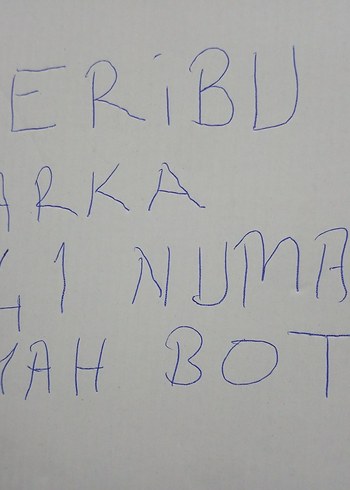 ERİBU
ARKA
41 NUMA
YAH BOT